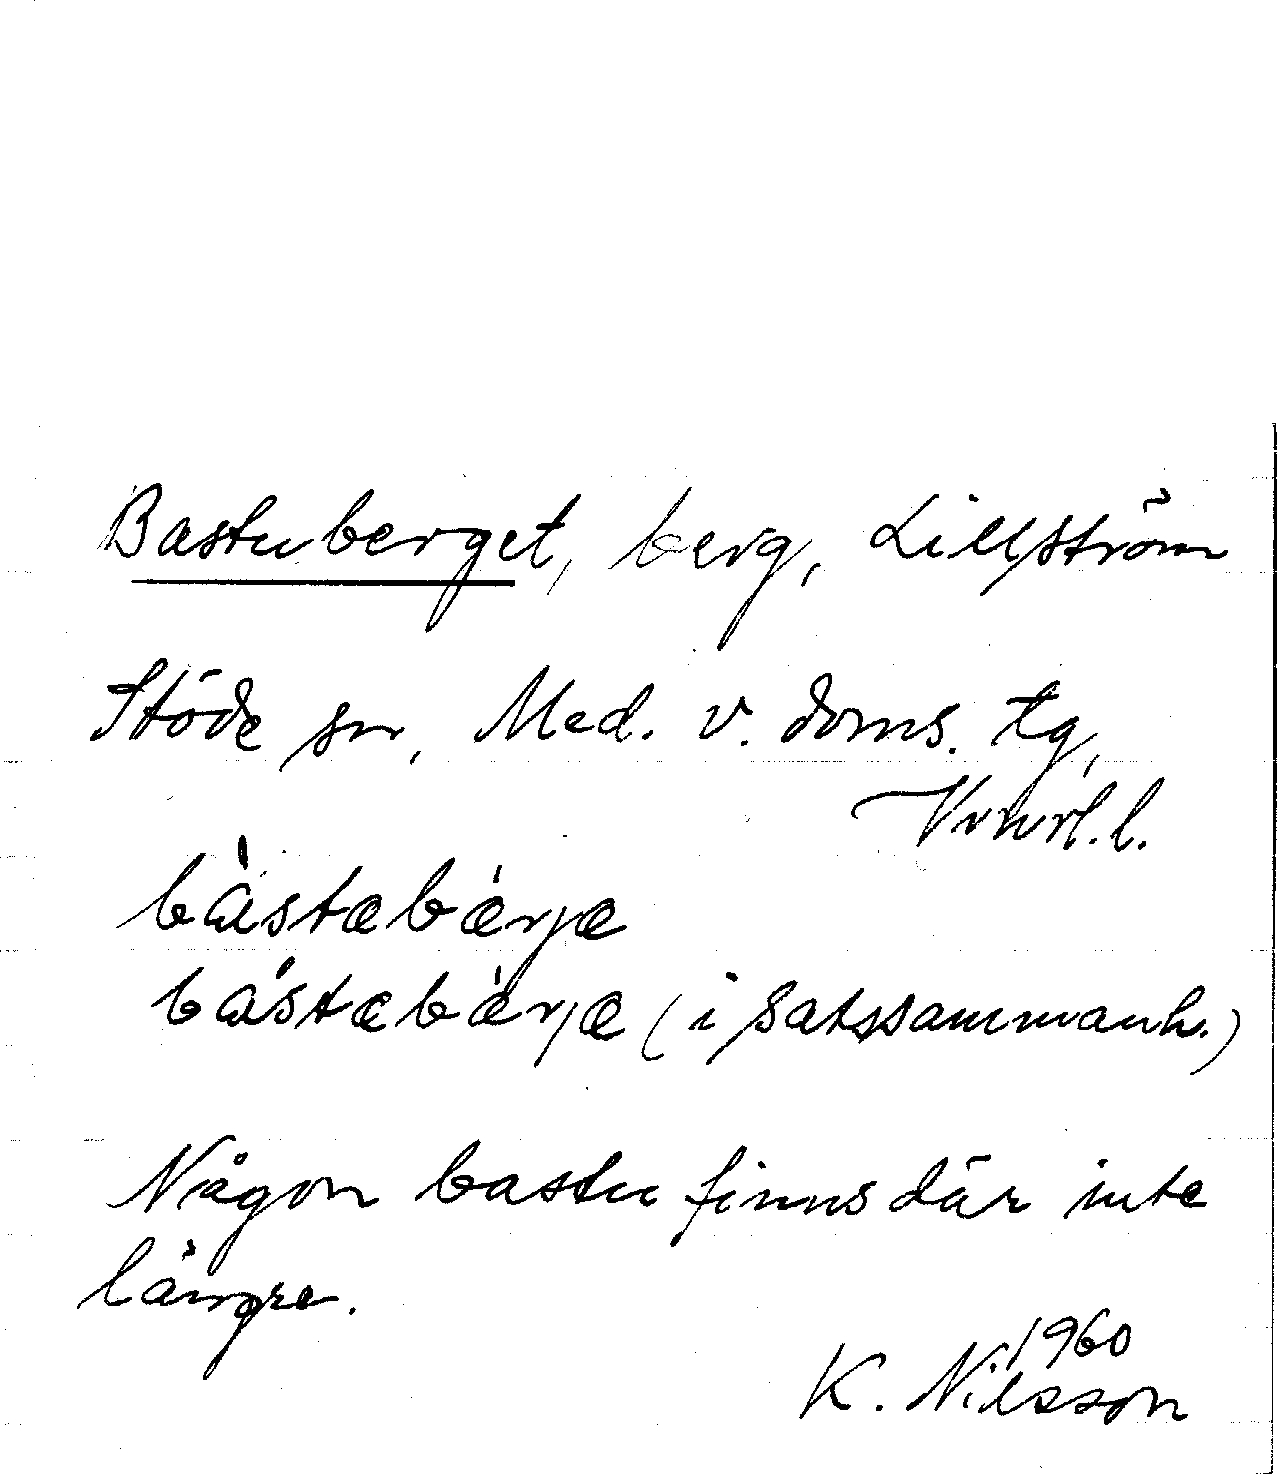 Bastuberget, berg, Lillström
Stöde sn, Med. v. doms. tg,
l.
bàstæbǽrjæ
bástæbǽrjæ (i satssammanh.)
Någon bastu finns där inte
längre.
1960
K. Nilsson